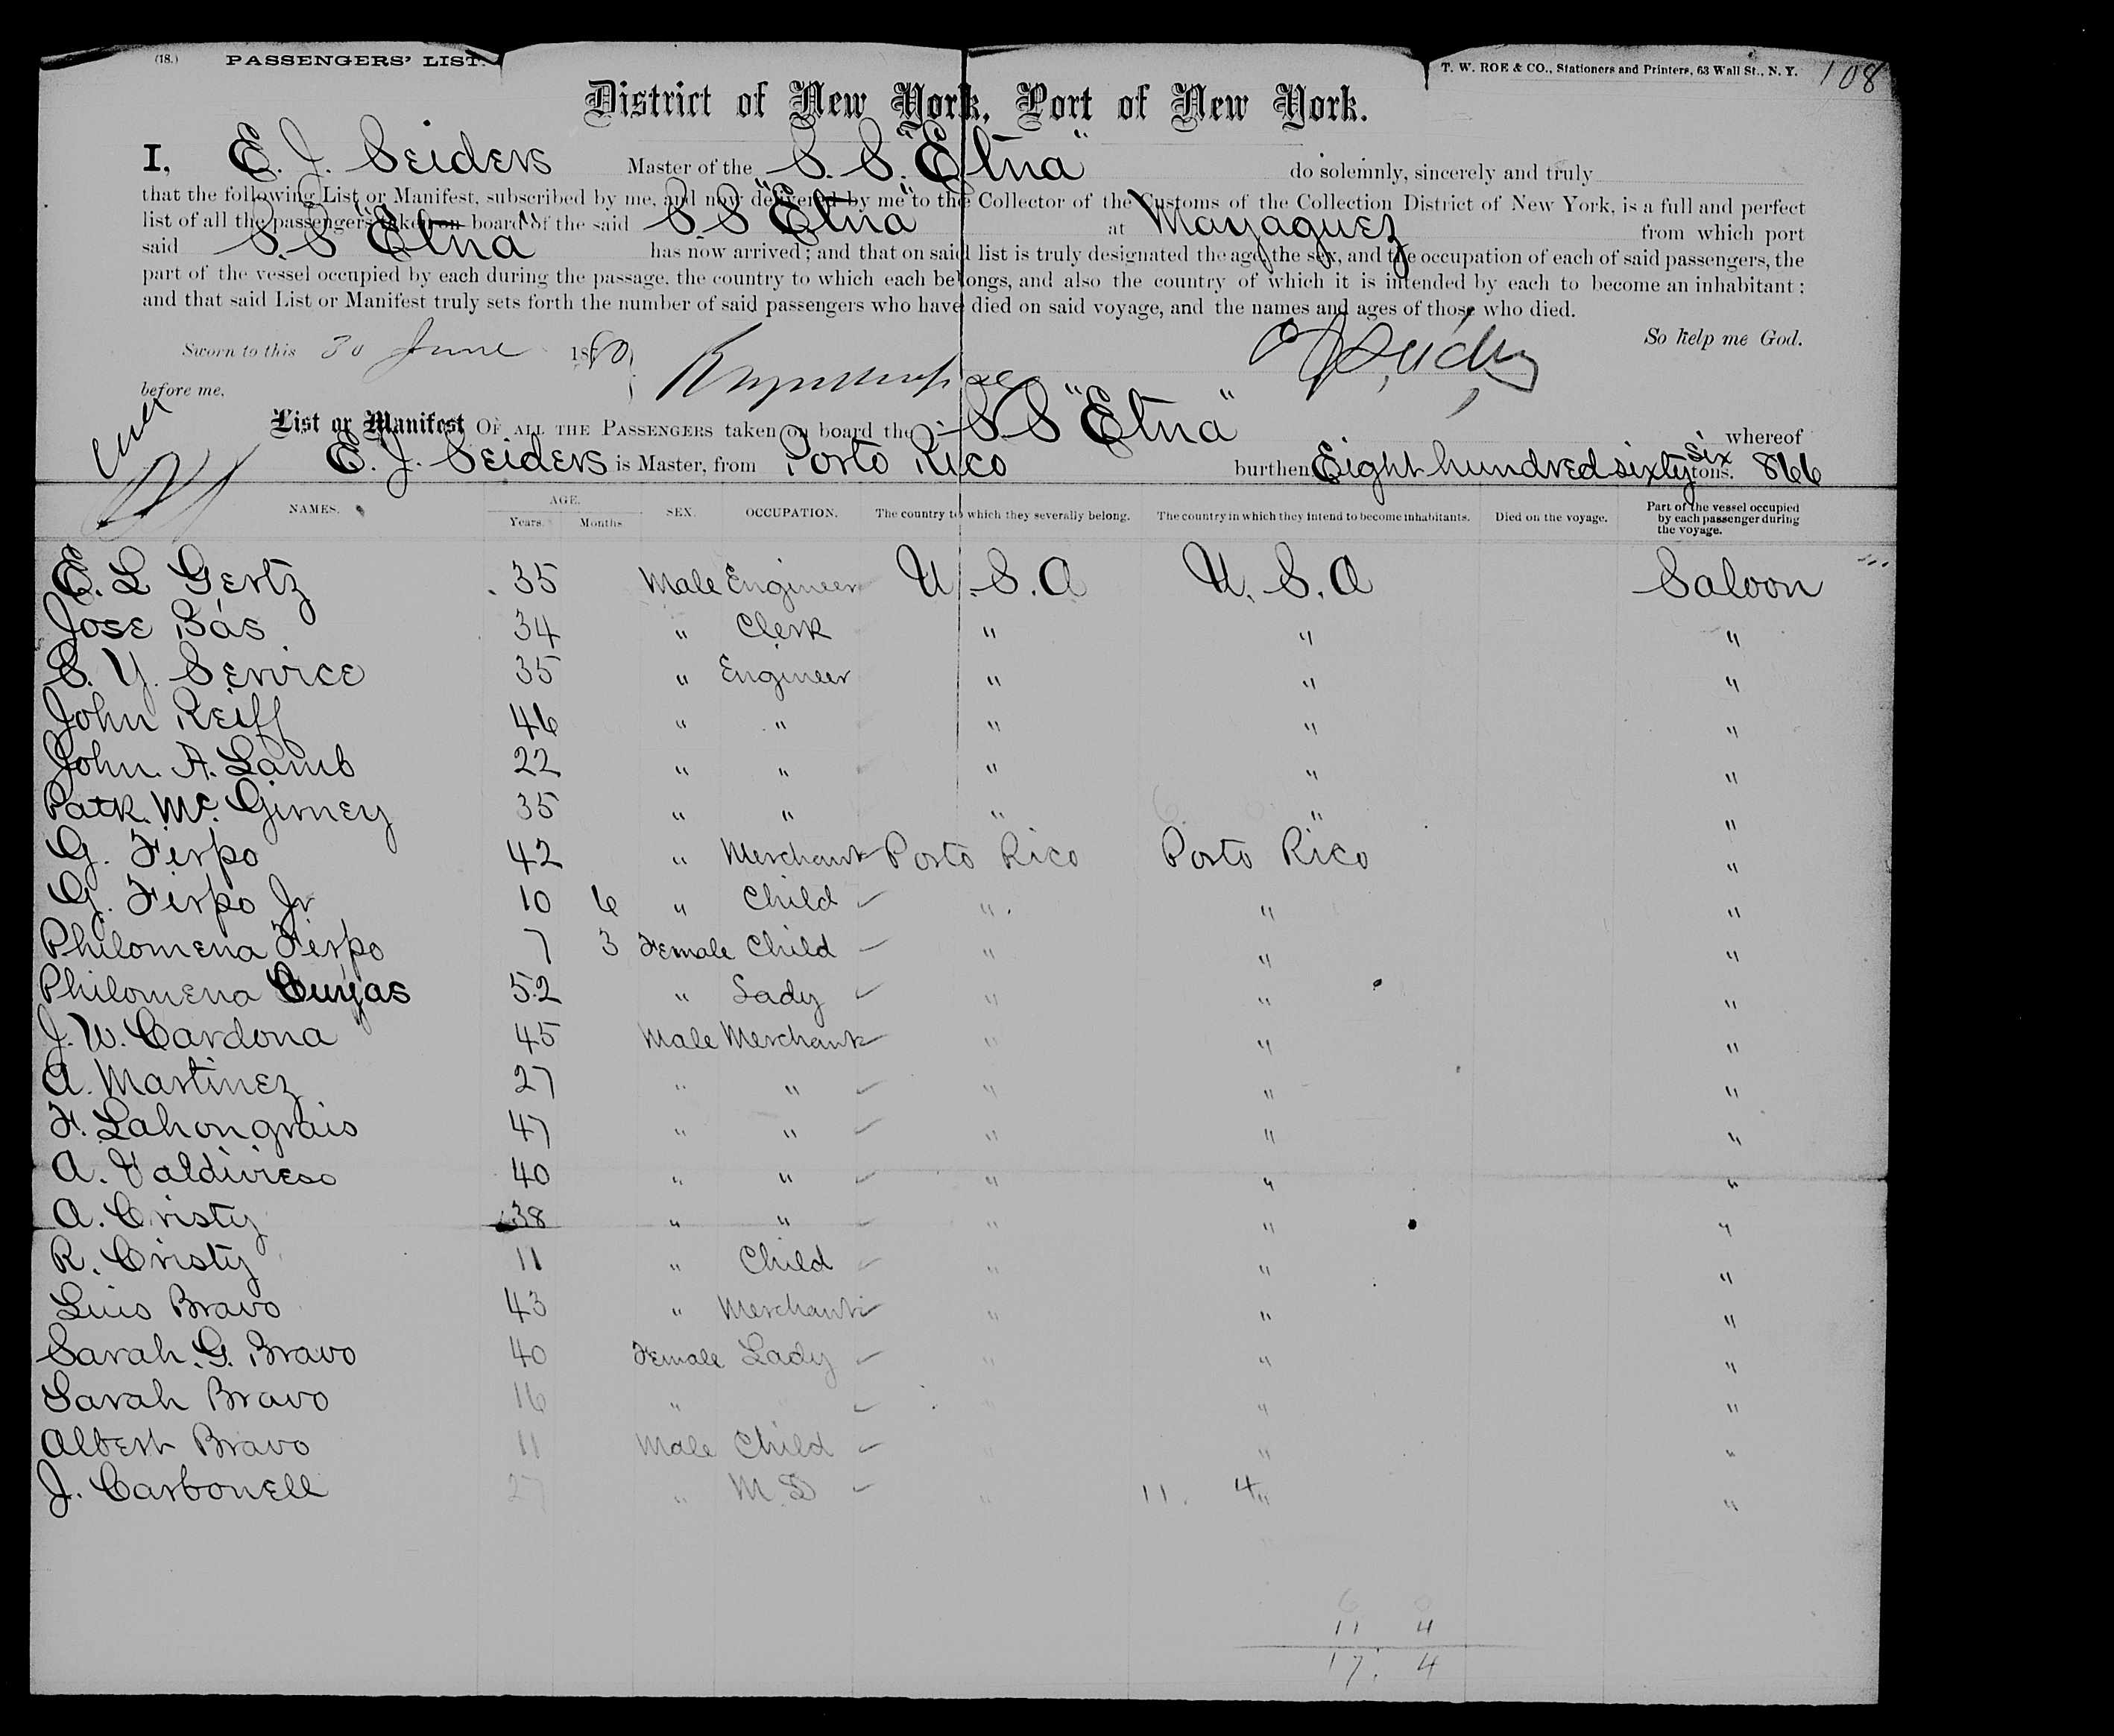 (18.) PASSENGERS' LIST.
T. W. ROE & CO., Stationers and Printers, 63 Wall St., N. Y. 108
District of New York, Port of New York.
I, E. J. Seiders Master of the S. S. "Etna" do solemnly, sincerely and truly
that the following List or Manifest, subscribed by me, and now delivered by me to the Collector of the Customs of the Collection District of New York, is a full and perfect
list of all the passengers taken on board of the said S S "Etna" at Mayaguez from which port
said S. S "Etna" has now arrived; and that on said list is truly designated the age, the sex, and the occupation of each of said passengers, the
part of the vessel occupied by each during the passage, the country to which each belongs, and also the country of which it is intended by each to become an inhabitant;
and that said List or Manifest truly sets forth the number of said passengers who have died on said voyage, and the names and ages of those who died.
So help me God.
Sworn to this 30 June 1880 E J Seiders
before me,
List or Manifest OF ALL THE PASSENGERS taken on board the S. S "Etna" whereof
E. J. Seiders is Master, from Porto Rico burthen Eight hundred sixty six tons. 866
NAMES. AGE. Years. Months. SEX. OCCUPATION. The country to which they severally belong. The country in which they intend to become inhabitants. Died on the voyage. Part of the vessel occupied by each passenger during the voyage.
E. L Gertz 35 Male Engineer U. S. A U. S. A Saloon
Jose Bas 34 " Clerk " " "
S. Y. Service 35 " Engineer " " "
John Reiff 46 " " " " "
John. A. Lamb 22 " " " " "
Patk. Mc. Girney 35 " " " " "
G. Firpo 42 " Merchant Porto Rico Porto Rico "
G. Firpo Jr 10 6 " Child " " "
Philomena Firpo 7 3 Female Child " " "
Philomena Cuyas 52 " Lady " " "
J. W. Cardona 45 Male Merchant " " "
A. Martinez 27 " " " " "
F. Lahongrais 47 " " " " "
A. Valdivieso 40 " " " " "
A. Cristy 38 " " " " "
R. Cristy 11 " Child " " "
Luis Bravo 43 " Merchant " " "
Sarah. G. Bravo 40 Female Lady " " "
Sarah Bravo 16 " " " "
Albert Bravo 11 Male Child " " "
J. Carbonell 27 " M. D " 11. 4 " "
6 0
11 4
17. 4